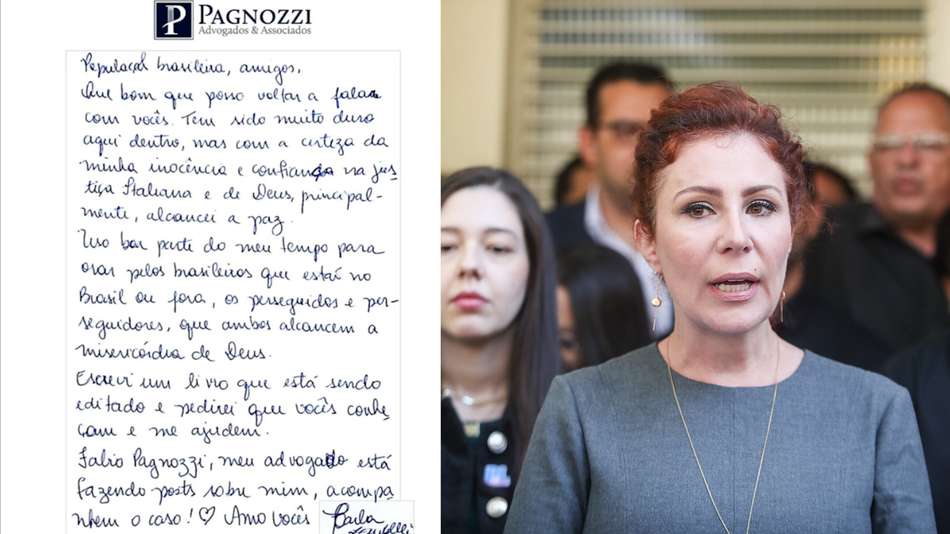 PAGNOZZI
Advogados & Associados
P
População brasileira, amigos,
Que bom que posso voltar a falar
com vocês. Tem sido muito duro
aqui dentro, mas com a certeza da
minha inocência e confiança na jus
tiça Italiana e de Deus, principal-
mente, alcancei a paz.
Uso boa parte do meu tempo para
orar pelos brasileiros que está no
Brasil ou fora, os perseguidos e per-
seguidores, que ambos alcancem a
misericórdia de Deus.
Escrevi um livro que está sendo
editado e pedirei que vocês conhe
çam e me ajudem.
Fabio Pagnozzi, meu advogado está
fazendo posts sobre mim, acompa
nhem o caso! ♡ Amo vocês